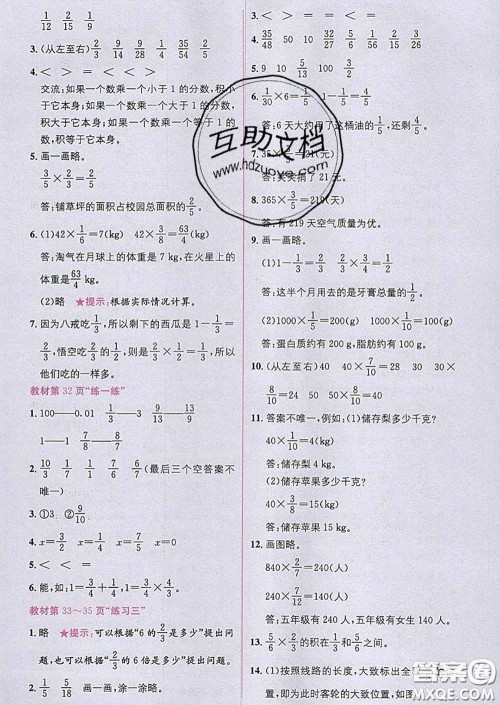 1/12 2/15 1/9
3. (从左至右) 2/3 2/9 1/4 5/18
4. < > = < < =
交流:如果一个数乘一个小于1的分数,积小
于它本身;如果一个数乘一个大于1的分数,
积大于它本身;如果一个数乘一个等于1的分
数,积等于它本身。
5. 画一画略。
3/5×2/3=2/5
答:铺草坪的面积占校园总面积的2/5。
6. (1)42×1/6=7(kg) 42×3/8=63/4(kg)
答:淘气在月球上的体重是7 kg,在火星上的
体重是63/4 kg。
(2)略 ★提示:根据实际情况计算。
7. 因为八戒吃1/3,所以剩下的西瓜是1—1/3=
2/3,悟空吃了2/3×1/2=1/3,1/3=1/3,所以
他们吃的一样多。
教材第32页“练一练”
1. 100——0.01 1/3——3
1——1 7/8——8/7
2. 10/3 1/7 1/6 3/2 7/5 (最后三个空答案不
唯一)
3. ①3/5 ②9/10
4. x=4/3 x=1/5 x=7/5 x=0
5. < = < =
6. 能,如:1=3/4+1/4,1=3/4×4/3。
教材第33~35页“练习三”
1. 略 ★提示:可以根据“6的2/3是多少”提出问
题,也可以根据“2/3的6倍是多少”提出问题。
2. 1/5 5/18 画一画,涂一涂略。
3. < > < = < >
4. 35/48 50 10 3/10
5. 9 10
6. 1/30×6=1/5
答:6天大约用了这桶油的1/5,还剩4/5。
7. 35×3/5=21(元)
答:笑笑捐了21元。
8. 365×3/5=219(天)
答:有219天空气质量为优。
9. 画一画略。
答:这半个月用去的是牙膏总量的
(2)1000×1/5=200(克) 1000×
答:蛋白质大约有200克,脂肪大约
10. (从左至右) 40 40×7/10=28
8/10 40×8/10=32
11. 答案不唯一,例如:(1)储存梨多少千克?
40×1/10=4(kg)
答:储存梨4 kg。
(2)储存苹果多少千克?
40×3/8=15(kg)
答:储存苹果15 kg。
12. 画图略。
840×2/7=240(人)
答:五年级有240人,六年级有
13.
14. (1)按照线路的长度,大致标出全
置,即为此时客轮的大致位置,如图
互助文档
www.hdzuoye.com
答案圈
MXQE.COM